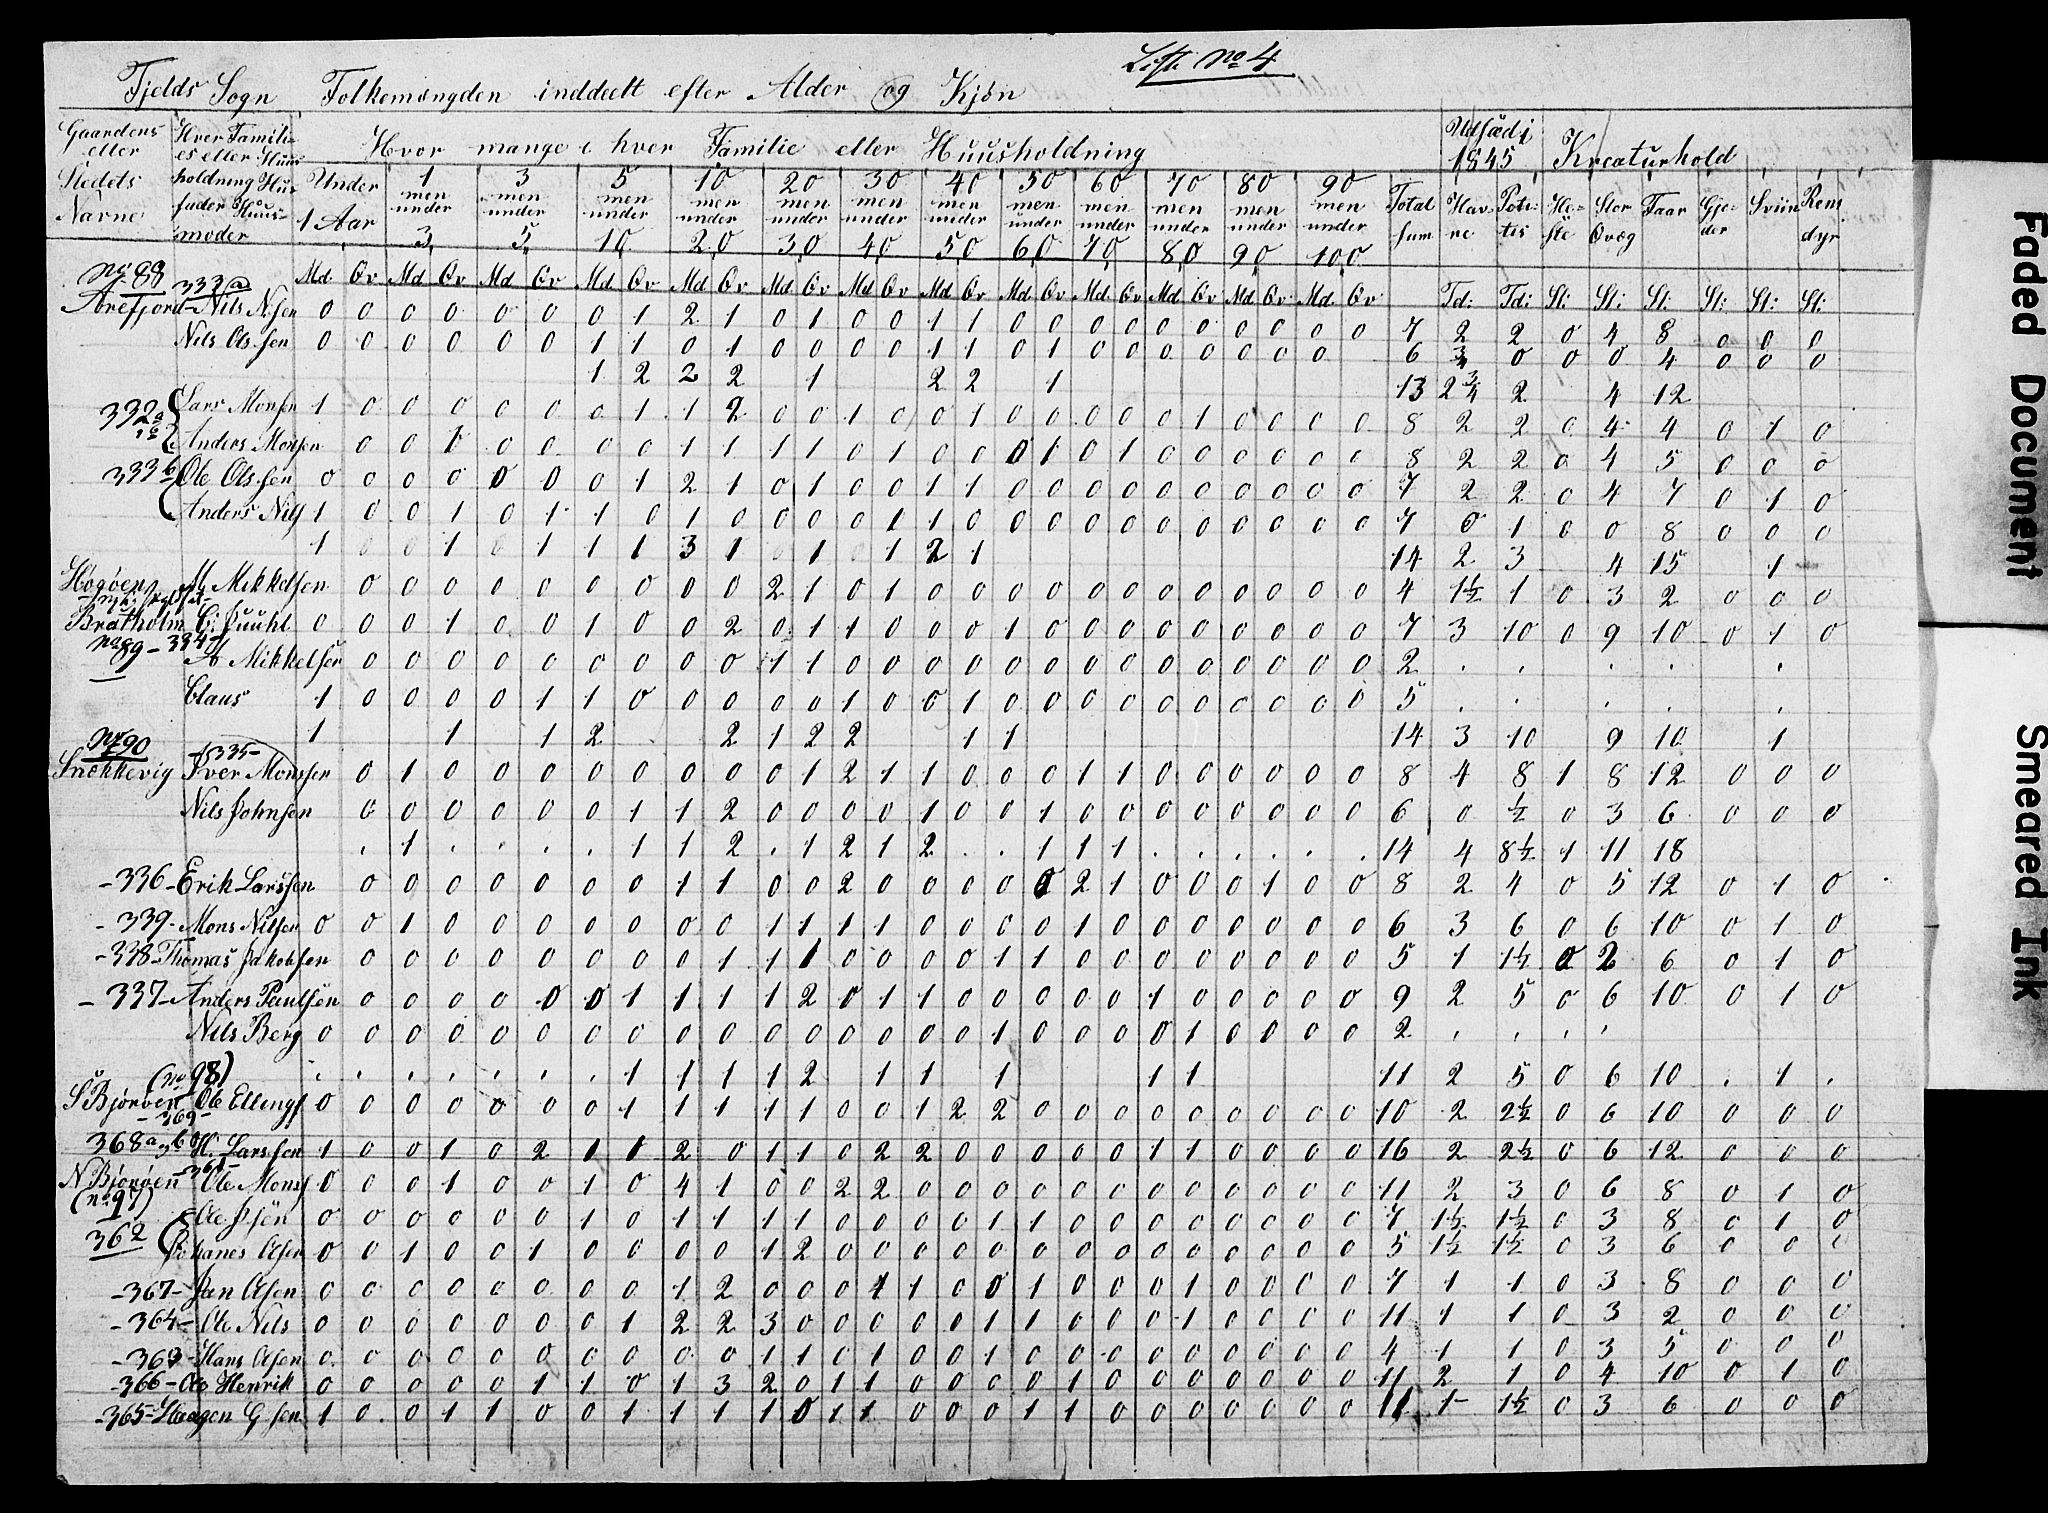 Liste No 4
Fjelds Sogn Folkemængden inddeelt efter Alder og Kjøn
Gaardens eller Stedets Navne | Hver Familie es eller Huus holdning Huus fader Huus- moder | Hvor mange i hver Familie eller Huusholdning | Udsæd i 1845 | Kreaturhold
Under 1 Aar | 1 men under 3 | 3 men under 5 | 5 men under 10 | 10 men under 20 | 20 men under 30 | 30 men under 40 | 40 men under 50 | 50 men under 60 | 60 men under 70 | 70 men under 80 | 80 men under 90 | 90 men under 100 | Total sum | Hav- re | Pote- tis | He- ste | Stor Qvæg | Faar | Gje- der | Sviin | Rens dyr
Md Qv Md Qv Md Qv Md Qv Md Qv Md Qv Md Qv Md Qv Md Qv Md Qv Md Qv Md Qv Md Qv Td: Td: St: St: St: St: St: St:
No 88 333a
Arefjord Nils N.sen 0 0 0 0 0 0 0 1 2 1 0 1 0 0 1 1 0 0 0 0 0 0 0 0 0 0 7 2 2 0 4 8 0 0 0
Nils Ols.sen 0 0 0 0 0 0 1 1 0 1 0 0 0 0 1 1 0 1 0 0 0 0 0 0 0 0 6 3/4 0 0 0 4 0 0 0
1 2 2 2 1 2 2 1 13 2 3/4 2 4 12
332a Lars Monsen 1 0 0 0 0 0 0 1 1 2 0 0 1 0 0 1 0 0 0 0 0 1 0 0 0 0 8 2 2 0 4 4 0 1 0
Anders Monsen 0 0 1 0 0 0 0 0 1 1 1 1 0 1 0 0 0 1 0 1 0 0 0 0 0 0 8 2 2 0 4 5 0 0 0
333b Ole Ols.sen 0 0 0 0 0 0 0 1 2 1 0 1 0 0 1 1 0 0 0 0 0 0 0 0 0 0 7 2 2 0 4 7 0 1 0
Anders Nils 1 0 0 1 0 1 1 0 1 0 0 0 0 1 1 0 0 0 0 0 0 0 0 0 0 0 7 0 1 0 0 8 0 0 0
1 0 0 1 0 1 1 1 3 1 1 0 1 2 1 14 2 3 4 15 1
Høgøen M Mikkelsen 0 0 0 0 0 0 0 0 0 0 2 1 0 1 0 0 0 0 0 0 0 0 0 0 0 0 4 1½ 1 0 3 2 0 0 0
Bratholm C: Juuhl 0 0 0 1 0 0 1 0 0 2 0 1 1 0 0 0 1 0 0 0 0 0 0 0 0 0 7 3 10 0 9 10 0 1 0
No 89 - 334
A Mikkelsen 0 0 0 0 0 0 0 0 0 0 1 1 0 0 0 0 0 0 0 0 0 0 0 0 0 0 2
Claus 1 0 0 0 0 1 1 0 0 0 0 0 1 0 0 1 0 0 0 0 0 0 0 0 0 0 5
1 1 1 2 2 1 2 2 1 1 14 3 10 9 10 1
No 90 -335-
Snekkevig Iver Monssen 0 1 0 0 0 0 0 0 0 0 1 2 1 1 0 0 0 1 1 0 0 0 0 0 0 8 4 8 1 8 12 0 0 0
Nils Johnsen 0 0 0 0 0 0 1 1 2 0 0 0 0 1 0 0 1 0 0 0 0 0 0 0 0 6 0 ½ 0 3 6 0 0 0
1 1 1 2 1 2 1 2 1 1 1 14 4 8½ 1 11 18
-336- Erik Larssen 0 0 0 0 0 0 0 1 1 0 0 2 0 0 0 0 0 2 1 0 0 0 1 0 0 8 2 4 0 5 12 0 1 0
-339- Mons Nilsen 0 0 1 0 0 0 0 0 0 0 1 1 1 1 0 0 0 0 1 0 0 0 0 0 0 0 6 3 6 0 6 10 0 1 0
-338- Thomas Jakobsen 0 0 0 0 0 0 0 0 1 1 1 0 0 0 0 1 1 0 0 0 0 0 0 0 0 5 1 1½ 0 2 6 0 1 0
-337- Anders Paulsen 0 0 0 0 0 0 1 1 1 1 2 0 1 1 0 0 0 0 0 1 0 0 0 0 0 9 2 5 0 6 10 0 1 0
Nils Berg 0 0 0 0 0 0 0 0 0 0 0 0 0 0 0 0 1 0 0 0 0 1 0 0 0 0 2
1 1 1 1 2 1 1 1 1 1 11 2 5 0 6 10 1
(no 98)
S Bjørøen Ole Ellengs 0 0 0 0 0 0 0 1 1 1 1 1 0 0 1 2 2 0 0 0 0 0 0 0 0 0 10 2 2½ 0 6 10 0 0 0
-369-
368a H. Larssen 1 0 0 1 0 2 1 1 2 0 1 1 0 2 2 0 0 0 0 0 1 1 0 0 0 0 16 2 2½ 0 6 12 0 0 0
N Bjørøen -361- Ole Mons 0 0 0 1 0 0 1 0 4 1 0 0 2 2 0 0 0 0 0 0 0 0 0 0 0 0 11 2 3 0 6 8 0 1 0
(no 97)
362 Ole J.sen 0 0 0 0 0 0 1 0 1 1 1 1 0 0 0 0 1 1 0 0 0 0 0 0 0 0 7 1½ 1½ 0 3 8 0 1 0
Johanes Olsen 0 0 1 0 0 1 0 0 0 0 1 2 0 0 0 0 0 0 0 0 0 0 0 0 0 0 5 1½ 1½ 0 3 6 0 0
-367- Jan Olsen 0 0 0 0 0 0 0 0 1 2 0 0 0 1 1 0 0 1 0 0 0 1 0 0 0 0 7 1 1 0 3 8 0 0 0
-364- Ole Nils 0 0 0 0 0 0 0 1 2 2 3 0 0 0 0 0 1 1 0 0 0 1 0 0 0 0 11 1 1 0 3 2 0 0 0
-363- Hans Olsen 0 0 0 0 0 0 0 0 0 0 1 1 0 1 0 0 1 0 0 0 0 0 0 0 0 0 4 1 1 0 3 5 0 0 0
-366- Ole Henrik 0 0 0 0 0 1 1 0 1 3 2 0 1 1 0 0 0 0 1 0 0 0 0 0 0 0 11 2 1 0 4 10 0 1 0
-365- Haagen G sen 1 0 0 1 1 0 0 1 1 1 1 0 1 1 0 0 0 1 1 0 0 0 0 0 0 0 11 1 1½ 0 3 6 0 0 0
Faded Document
Smeared Ink